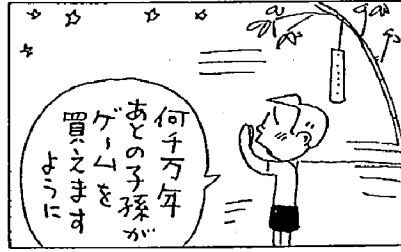 何千万年
あとの子孫が
ゲームを
買えます
ように